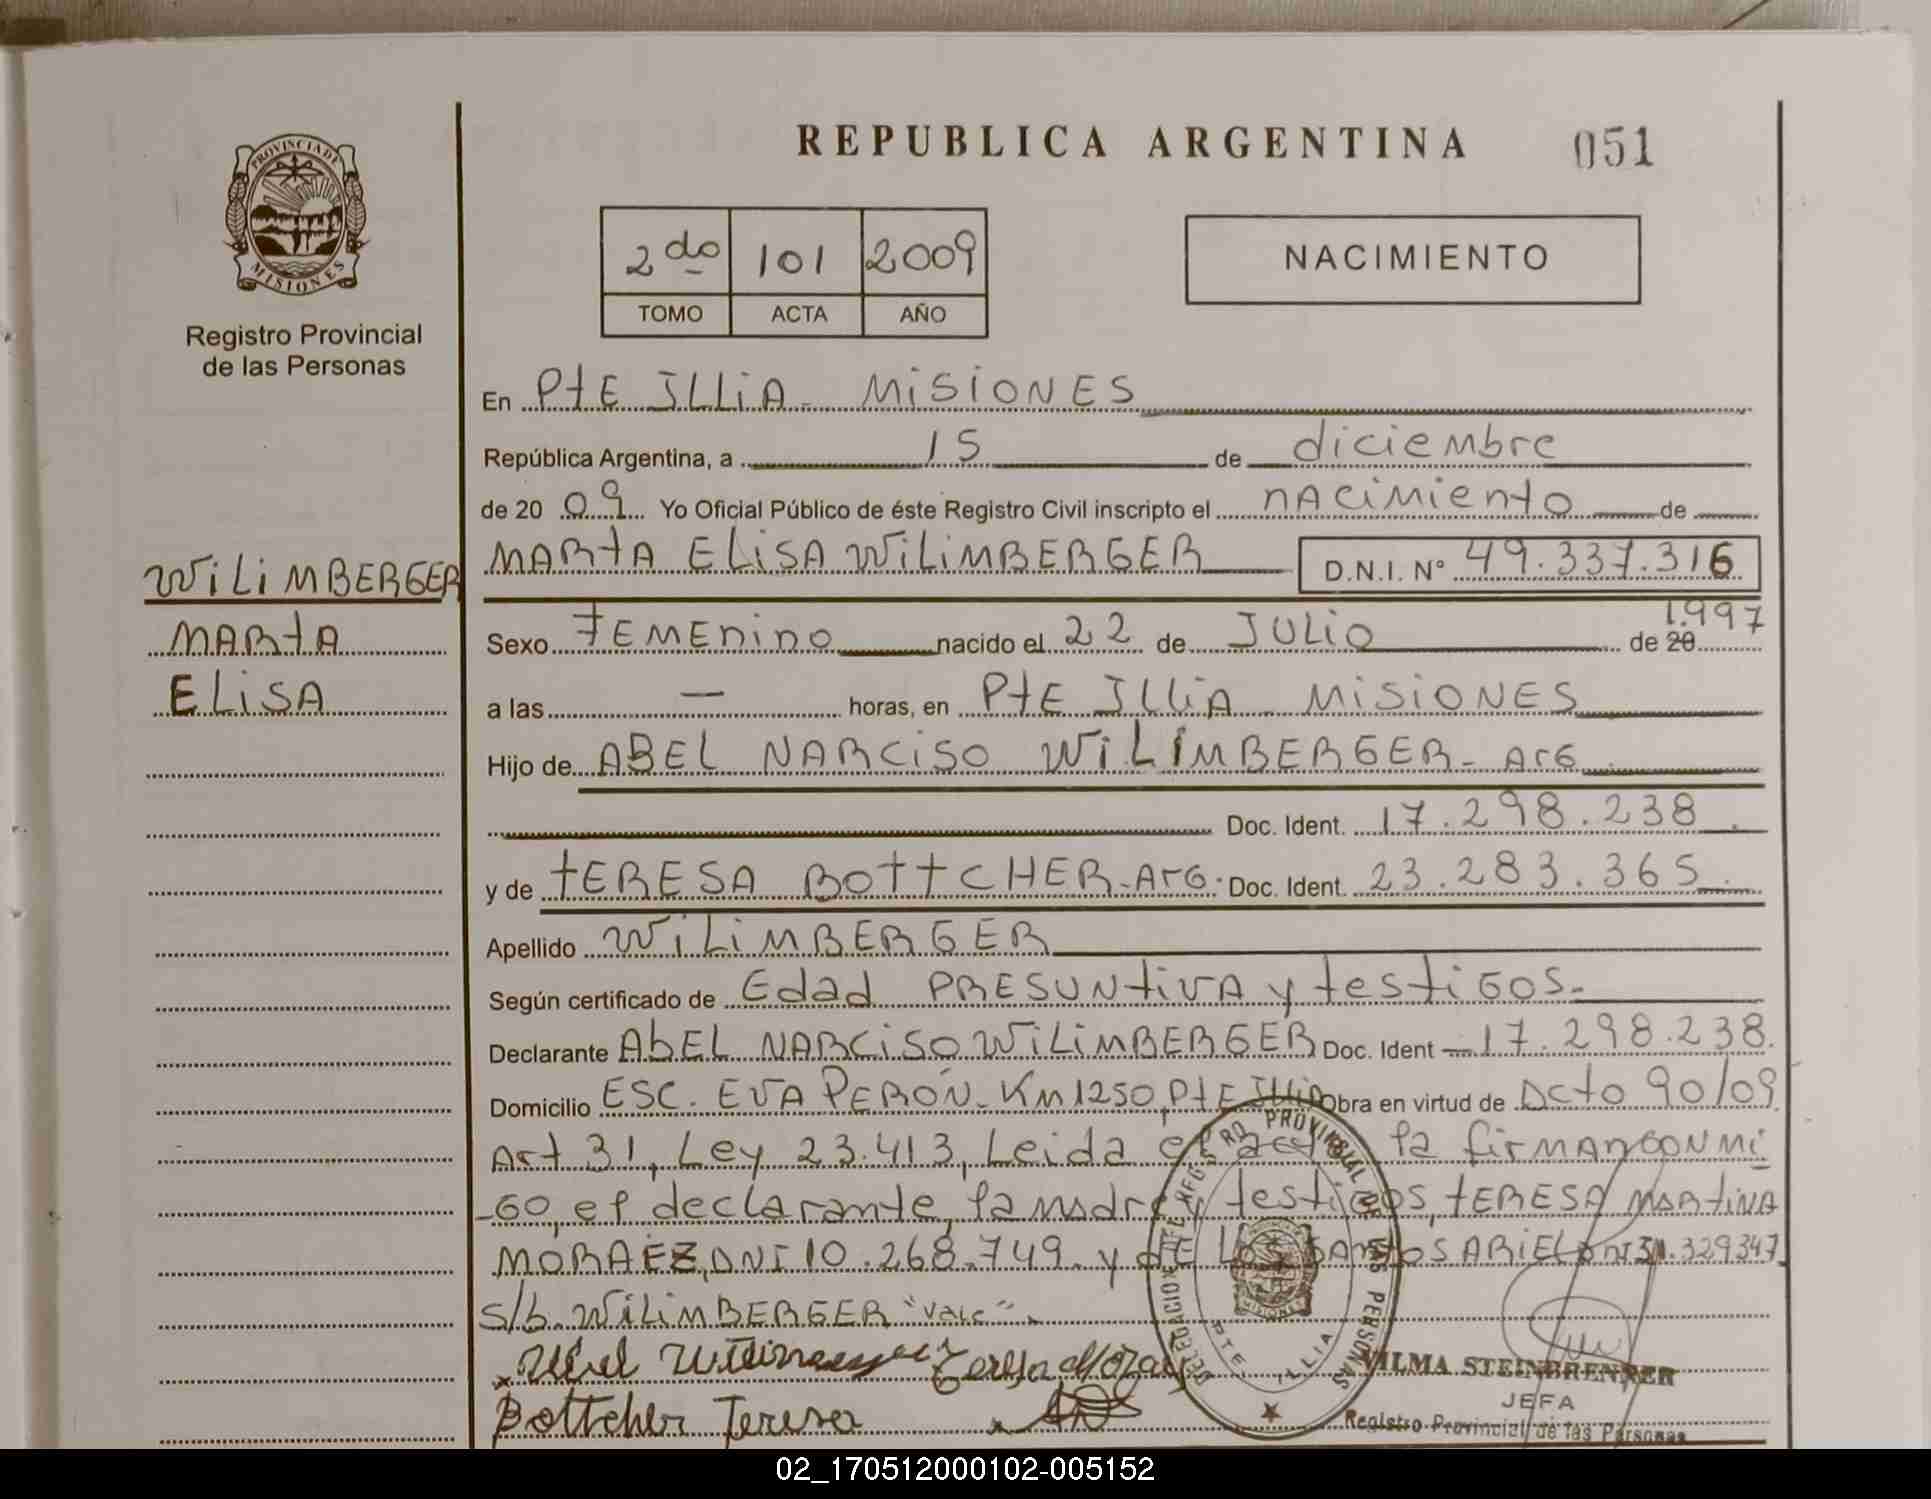 REPUBLICA ARGENTINA
051
PROVINCIA DE
MISIONES
Registro Provincial
de las Personas
2do 101 2009
TOMO ACTA AÑO
NACIMIENTO
En PtE ILLiA - MiSiONES
República Argentina, a 15 de diciembre
de 20 09 Yo Oficial Público de éste Registro Civil inscripto el nacimiento de
MARtA ELiSA WiLiMBERGER D.N.I. N° 49.337.316
WiLiMBERGER
MARtA
ELiSA
Sexo FEMEnino nacido el 22 de JULio de 20 1.997
a las — horas, en PtE ILLiA - MiSiONES
Hijo de ABEL NARCiSO WiLiMBERGER - ArG
Doc. Ident. 17.298.238
y de tERESA BOttCHER - ArG. Doc. Ident. 23.283.365
Apellido WiLiMBERGER
Según certificado de Edad PRESUNtiVA y testiGOS.
Declarante AbEL NARCiSO WiLiMBERGER Doc. Ident 17.298.238.
Domicilio ESC. EVA PERÓN - Km 1250, PtE ILLiA Obra en virtud de Dcto 90/09
Art 31, Ley 23.413, Leida el acta la firman CONMi
-GO, el declarante, la madre y testigos, tERESA MARtiNA
MORAEZ, DNI 10.268.749. y dE LOS SANtOS ARiEL DNI 31.329347
S/b. WiLiMBERGER "Vale".
Abel Wilimberger
Teresa Moraez
Bottcher Teresa
DELEGACION REGISTRO PROVINCIAL DE LAS PERSONAS
PTE. ILLIA
MISIONES
VILMA STEINBRENNER
JEFA
Registro Provincial de las Personas
02_170512000102-005152